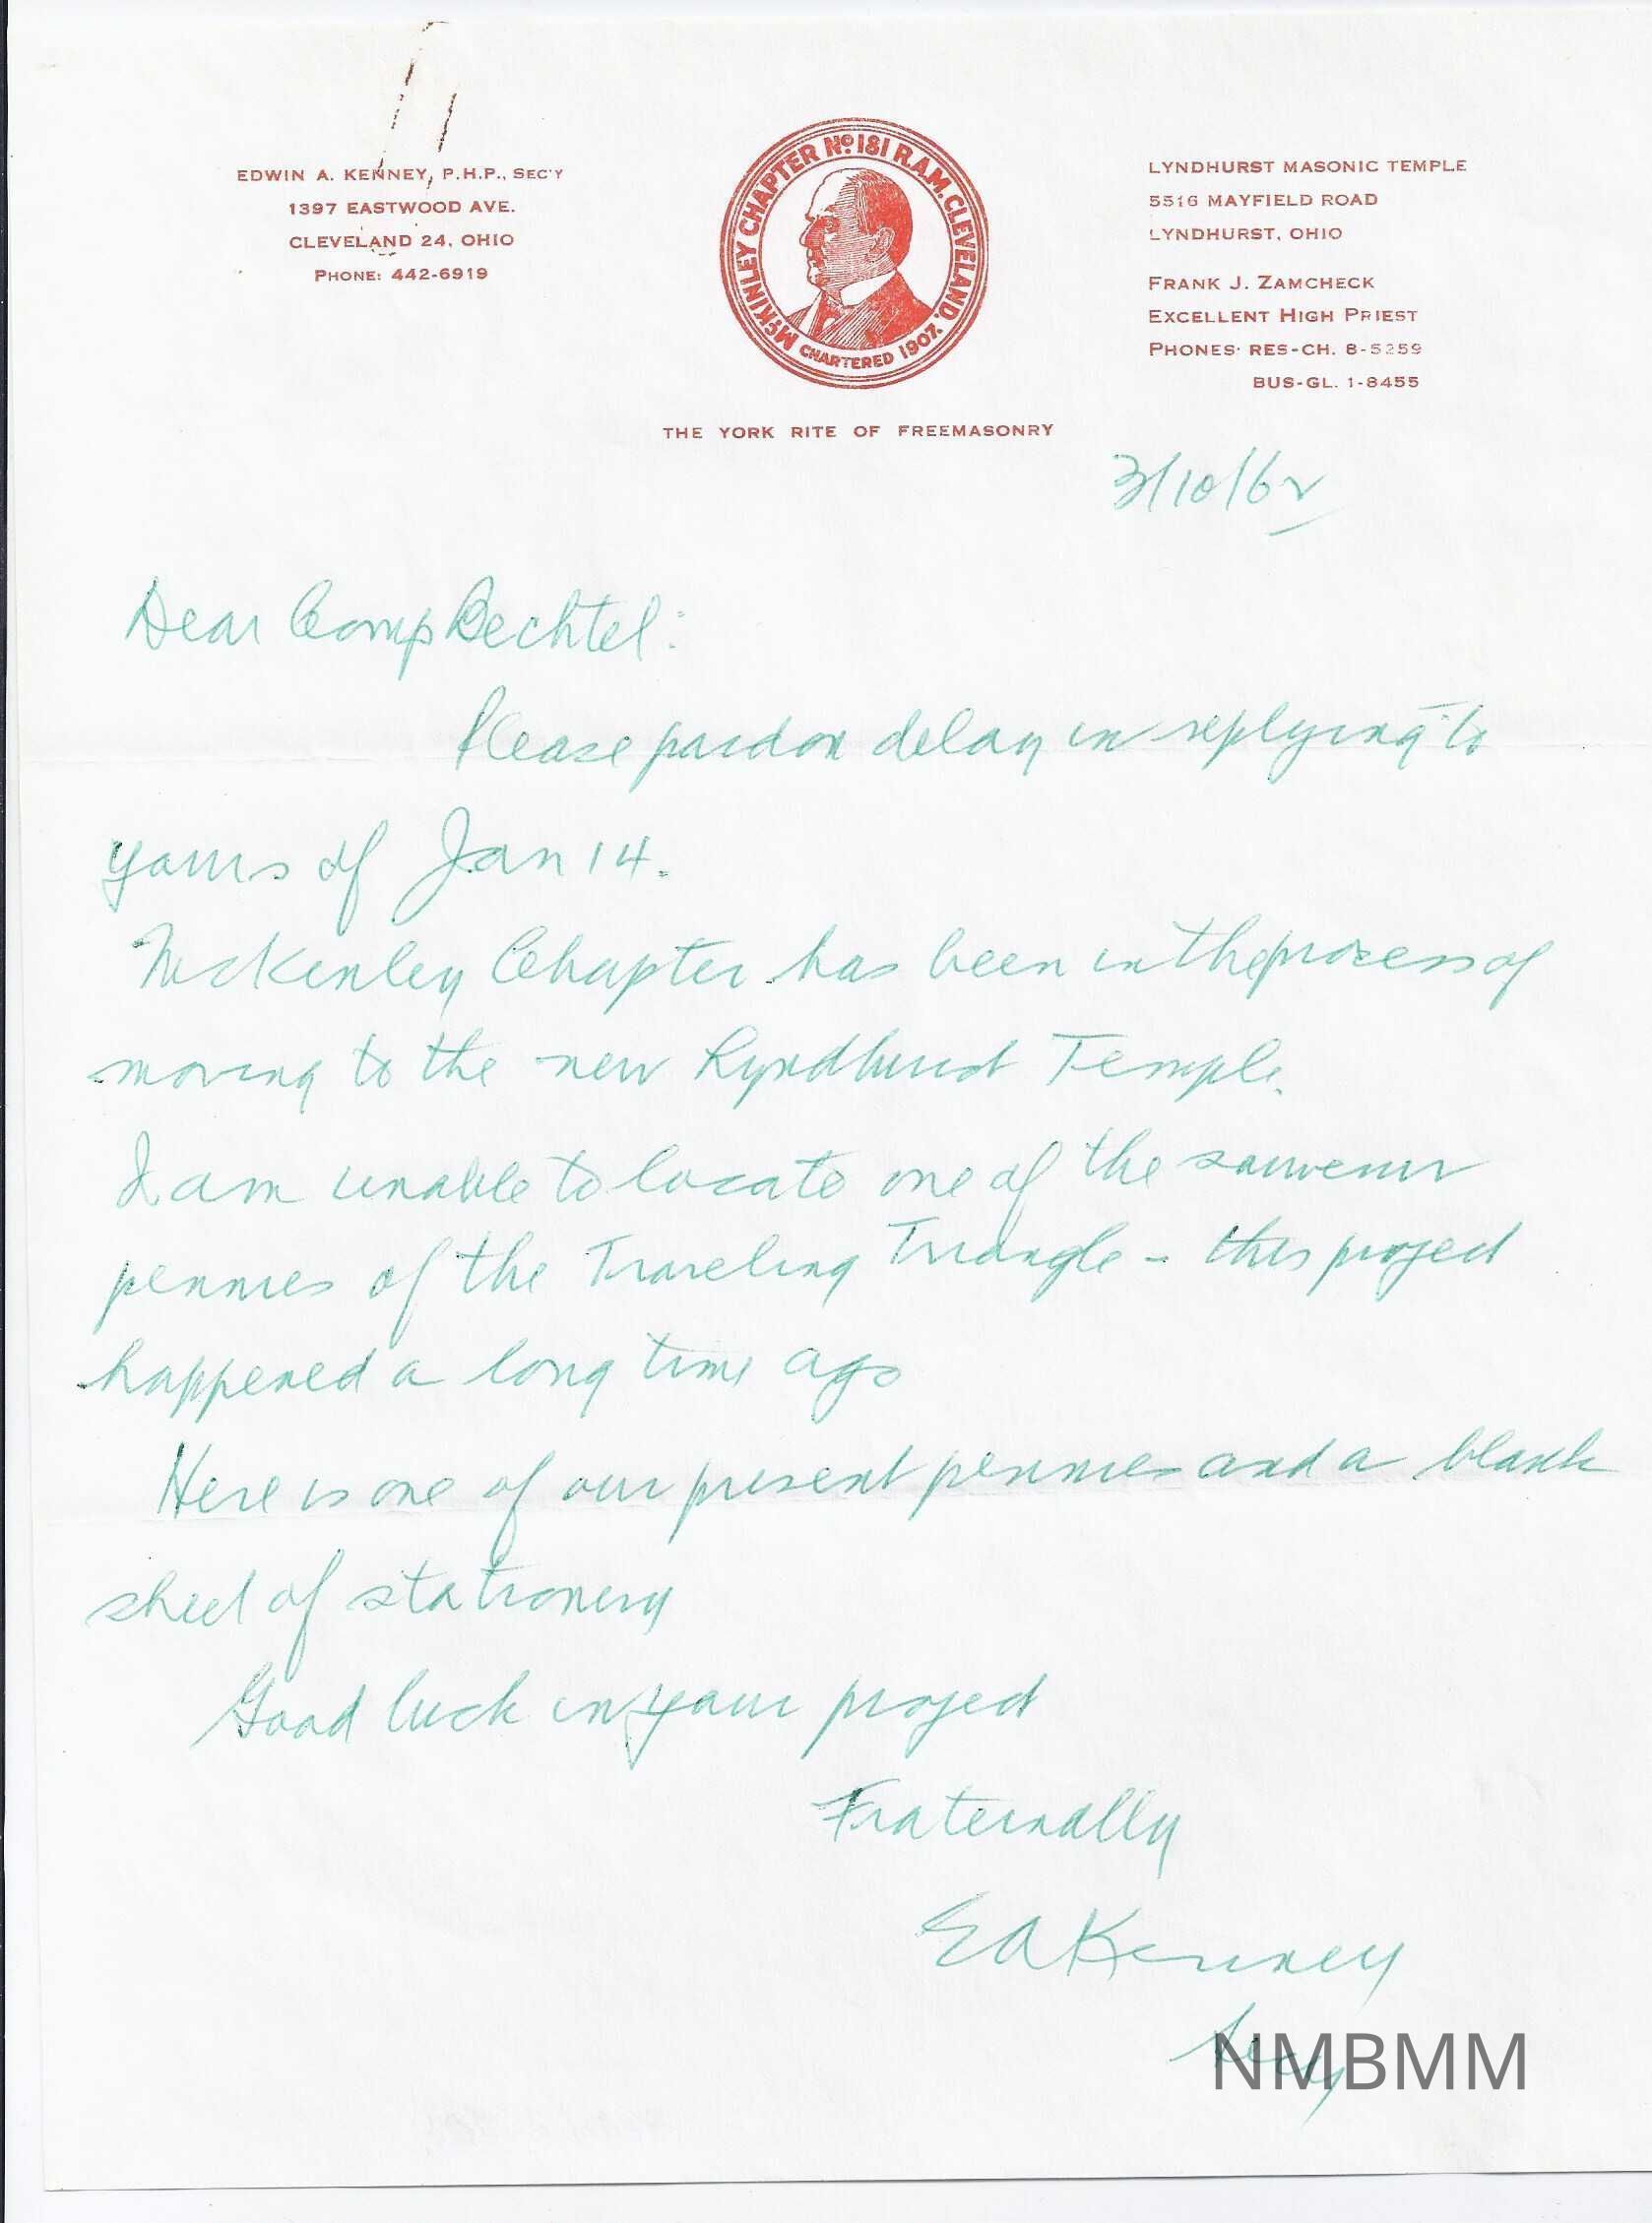 EDWIN A. KENNEY, P.H.P., SEC'Y
1397 EASTWOOD AVE.
CLEVELAND 24, OHIO
PHONE: 442-6919
McKINLEY CHAPTER No. 181 R.A.M. CLEVELAND, O.
CHARTERED 1907.
THE YORK RITE OF FREEMASONRY
LYNDHURST MASONIC TEMPLE
5516 MAYFIELD ROAD
LYNDHURST, OHIO
FRANK J. ZAMCHECK
EXCELLENT HIGH PRIEST
PHONES: RES-CH. 8-5259
BUS-GL. 1-8455
3/10/62
Dear Comp Bechtel:
Please pardon delay in replying to
yours of Jan 14.
McKinley Chapter has been in the process of
moving to the new Lyndhurst Temple.
I am unable to locate one of the souvenir
pennies of the Traveling Triangle - this project
happened a long time ago
Here is one of our present pennies and a blank
sheet of stationery
Good luck in your project
Fraternally
E A Kenney
Secy
NMBMM